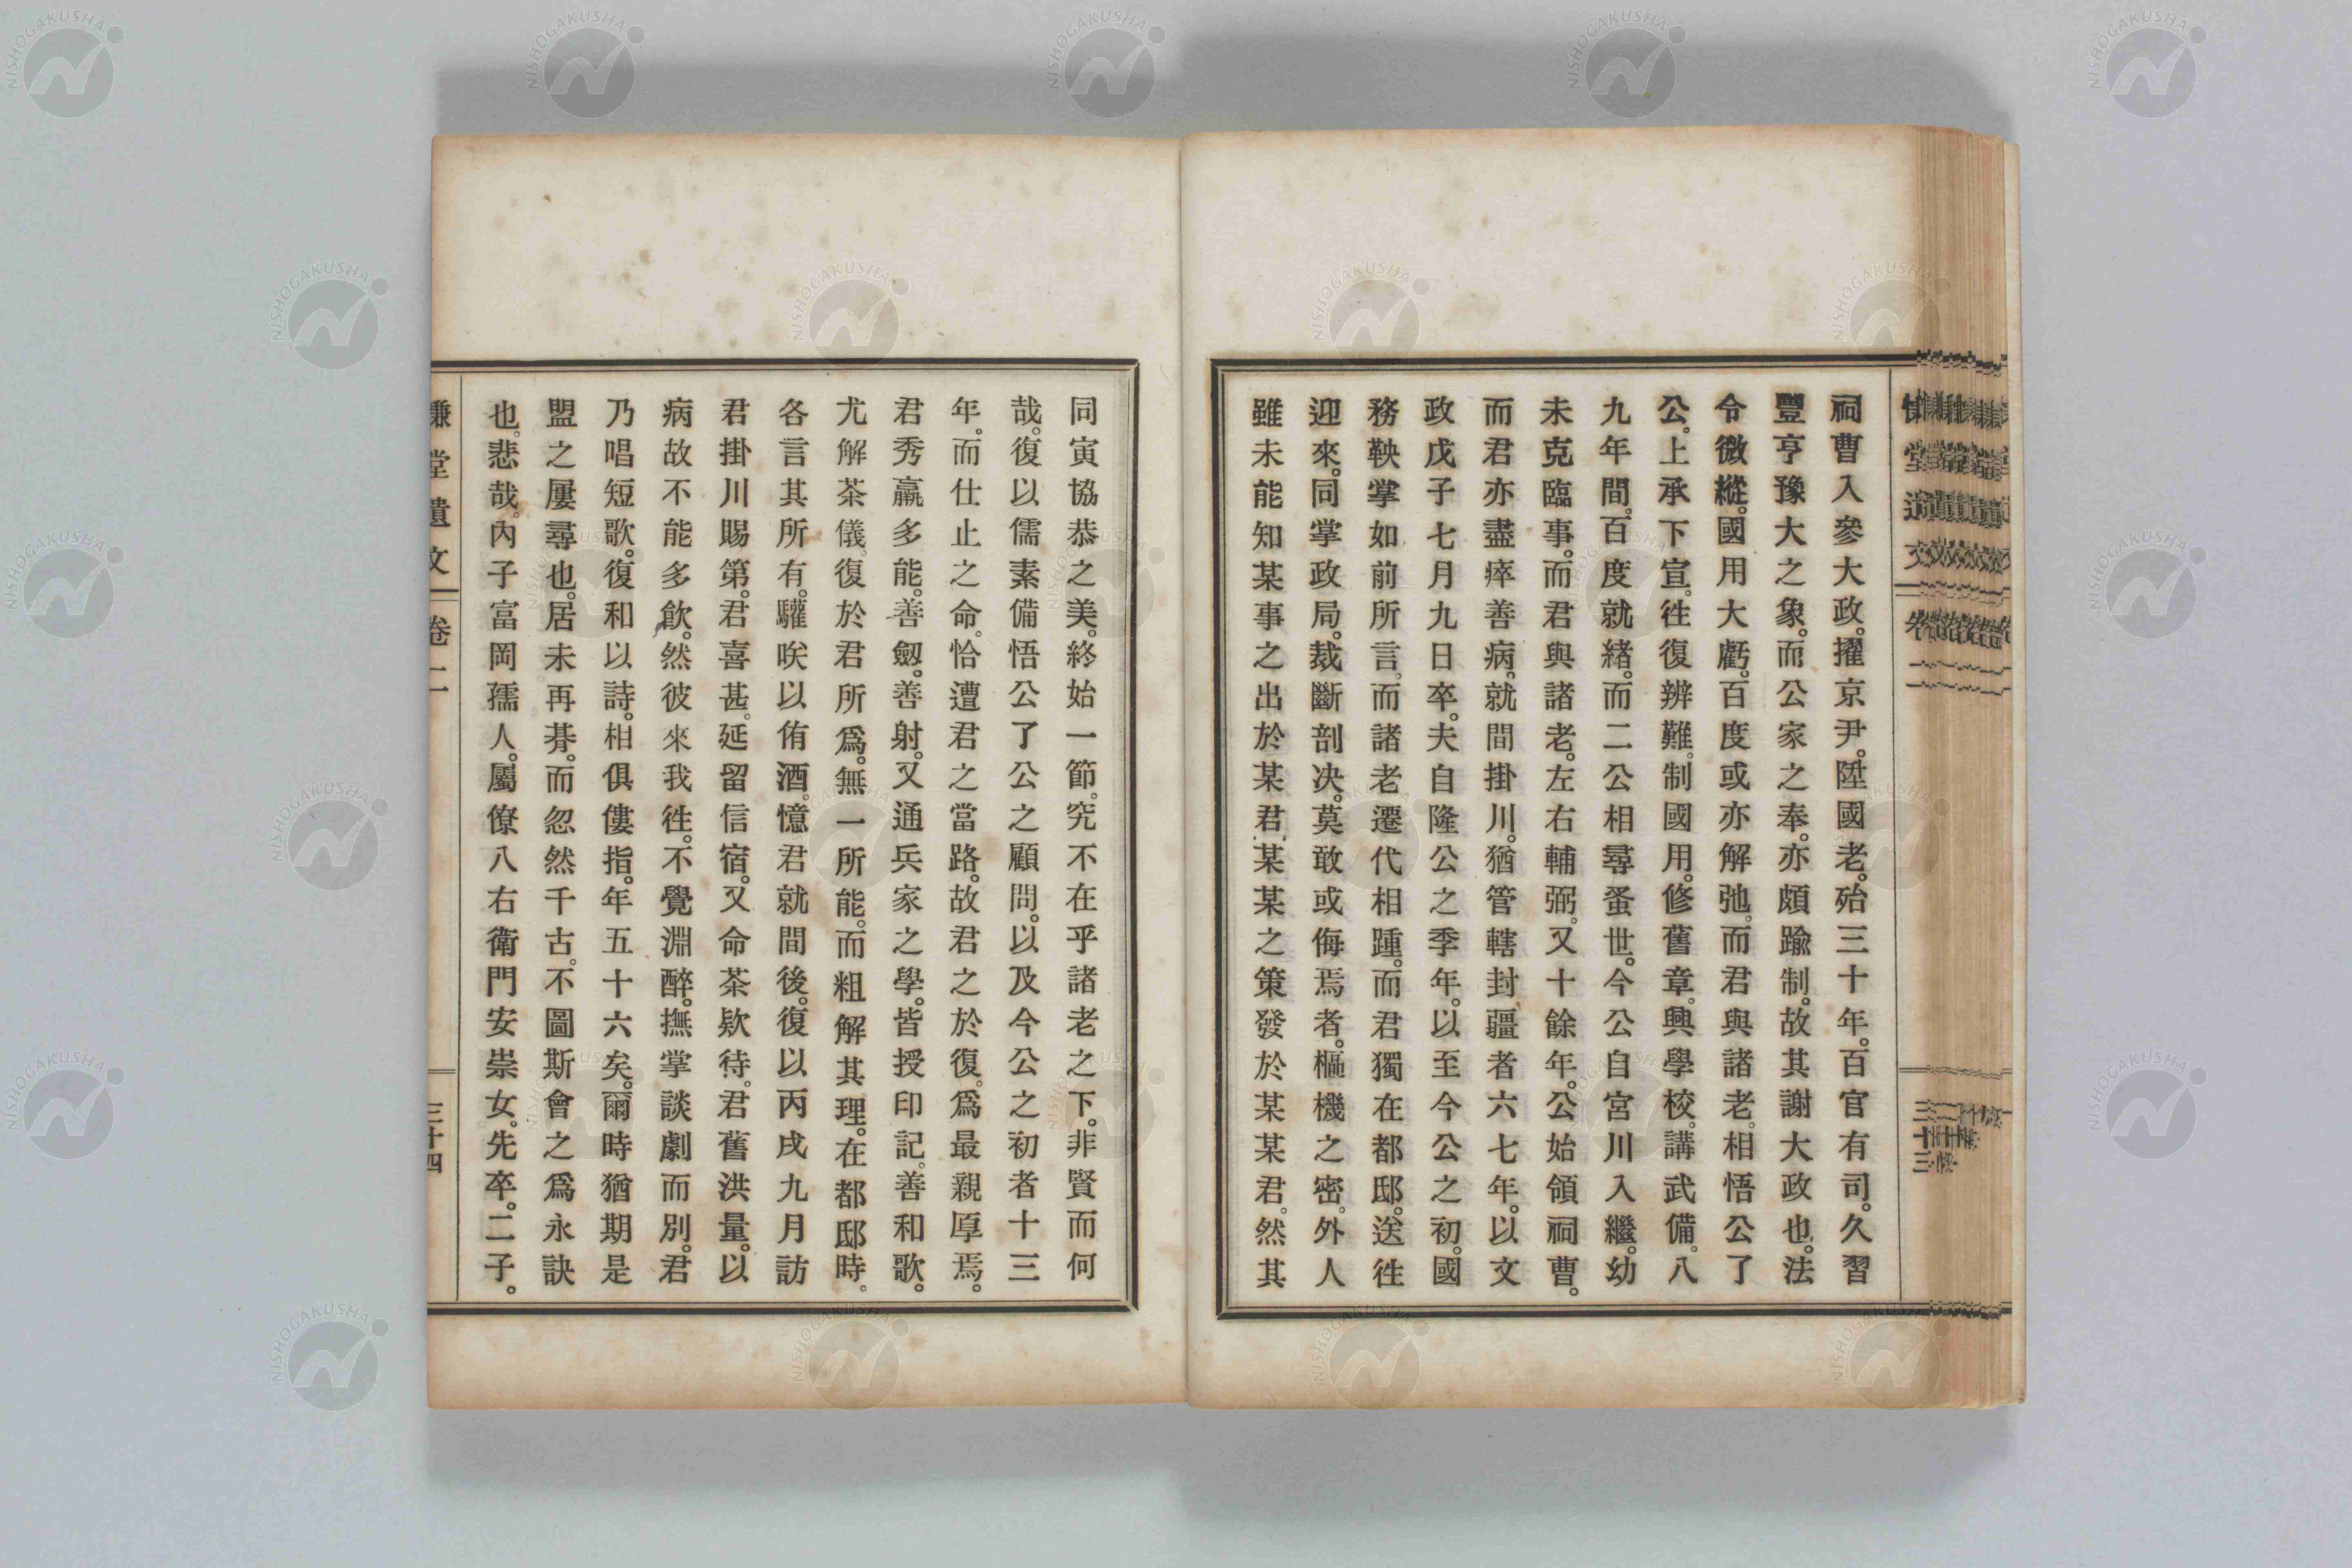 祠曹入參大政。擢京尹。陞國老。殆三十年。百官有司。久習
豐亨豫大之象。而公家之奉。亦頗踰制。故其謝大政也。法
令微縱。國用大虧。百度或亦解弛。而君與諸老。相悟公了
公。上承下宣。往復辨難。制國用。修舊章。興學校。講武備。八
九年間。百度就緒。而二公相尋蚤世。今公自宮川入繼。幼
未克臨事。而君與諸老。左右輔弼。又十餘年。公始領祠曹。
而君亦盡瘁善病。就間掛川。猶管轄封疆者六七年。以文
政戊子七月九日卒。夫自隆公之季年。以至今公之初。國
務鞅掌如前所言。而諸老遷代相踵。而君獨在都邸。送徃
迎來。同掌政局。裁斷剖决。莫敢或侮焉者。樞機之密。外人
雖未能知某事之出於某君、某某之策發於某某君。然其
同寅協恭之美。終始一節。究不在乎諸老之下。非賢而何
哉。復以儒素備悟公了公之顧問。以及今公之初者十三
年。而仕止之命。恰遭君之當路。故君之於復。爲最親厚焉。
君秀羸多能。善劔。善射。又通兵家之學。皆授印記。善和歌。
尤解茶儀。復於君所爲。無一所能。而粗解其理。在都邸時。
各言其所有。驩咲以侑酒。憶君就間後。復以丙戌九月訪
君掛川賜第。君喜甚。延留信宿。又命茶欵待。君舊洪量。以
病故不能多飮。然彼來我徃。不覺淵醉。撫掌談劇而別。君
乃唱短歌。復和以詩。相俱僂指。年五十六矣。爾時猶期是
盟之屢尋也。居未再朞。而忽然千古。不圖斯會之爲永訣
也。悲哉。內子富岡孺人。屬僚八右衛門安崇女。先卒。二子。
慊堂遺文 卷二 三十四